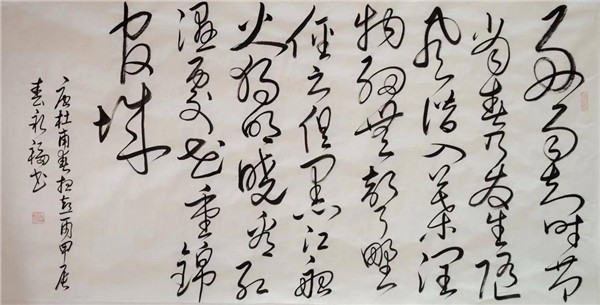 好雨知时节
当春乃发生随
风潜入夜润
物细无声野
径云俱黑江船
火独明晓看红
湿处花重锦
官城
唐杜甫春夜喜雨甲辰
春永福书